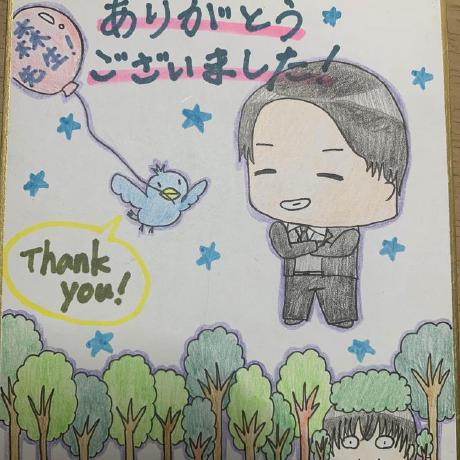 森
先生!
ありがとう
ございました!
Thank
you!